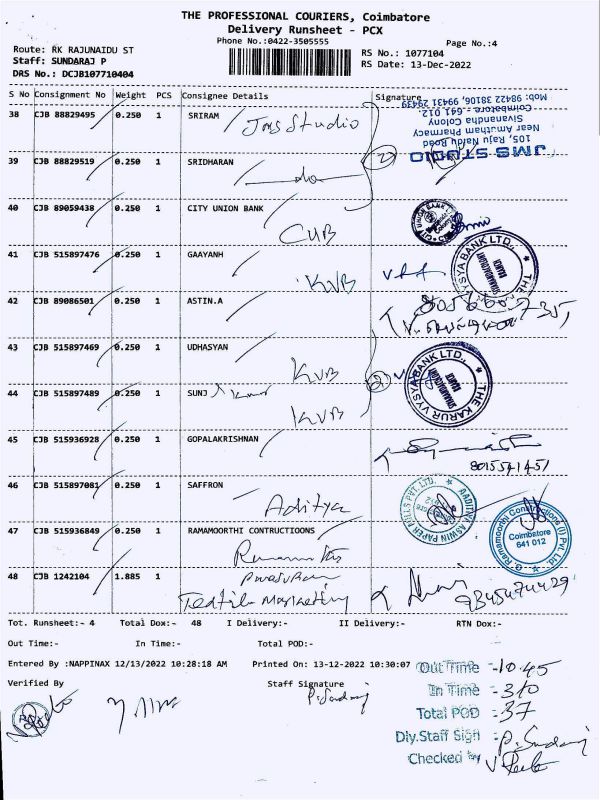 THE PROFESSIONAL COURIERS, Coimbatore
Delivery Runsheet - PCX
Phone No.:0422-3505555
Page No.:4
Route: RK RAJUNAIDU ST
Staff: SUNDARAJ P
DRS No.: DCJB107710404
RS No.: 1077104
RS Date: 13-Dec-2022
S No Consignment No Weight PCS Consignee Details Signature
38 CJB 88829495 0.250 1 SRIRAM
Jms Studio
JMS STUDIO
105, Raju Naidu Road
Near Amutham Pharmacy
Sivanandha Colony
Coimbatore - 641 012.
Mob: 98422 38106, 99431 29439
39 CJB 88829519 0.250 1 SRIDHARAN
do
40 CJB 89059438 0.250 1 CITY UNION BANK
CUB
CITY UNION BANK
41 CJB 515897476 0.250 1 GAAYANH
KVB
VYSYA BANK LTD.,
42 CJB 89086501 0.250 1 ASTIN.A
43 CJB 515897469 0.250 1 UDHASYAN
KVB
THE KARUR VYSYA BANK LTD.,
44 CJB 515897489 0.250 1 SUNJ
KVB
45 CJB 515936928 0.250 1 GOPALAKRISHNAN
8015541451
46 CJB 515897081 0.250 1 SAFFRON
Aditya
AADITHYA ASWIN PAPER MILLS PVT. LTD.
47 CJB 515936849 0.250 1 RAMAMOORTHI CONTRUCTIOONS
Ramamoorthi Constructions (I) Pvt. Ltd.
Coimbatore
641 012
48 CJB 1242104 1.885 1
Textile Marketing
9345474429
Tot. Runsheet:- 4 Total Dox:- 48 I Delivery:- II Delivery:- RTN Dox:-
Out Time:- In Time:- Total POD:-
Entered By :NAPPINAX 12/13/2022 10:28:18 AM Printed On: 13-12-2022 10:30:07
Verified By Staff Signature
P. Sundaraj
Out Time - 10.45
In Time - 310
Total POD - 37
Dly.Staff Sign : P. Sundaraj
Checked by